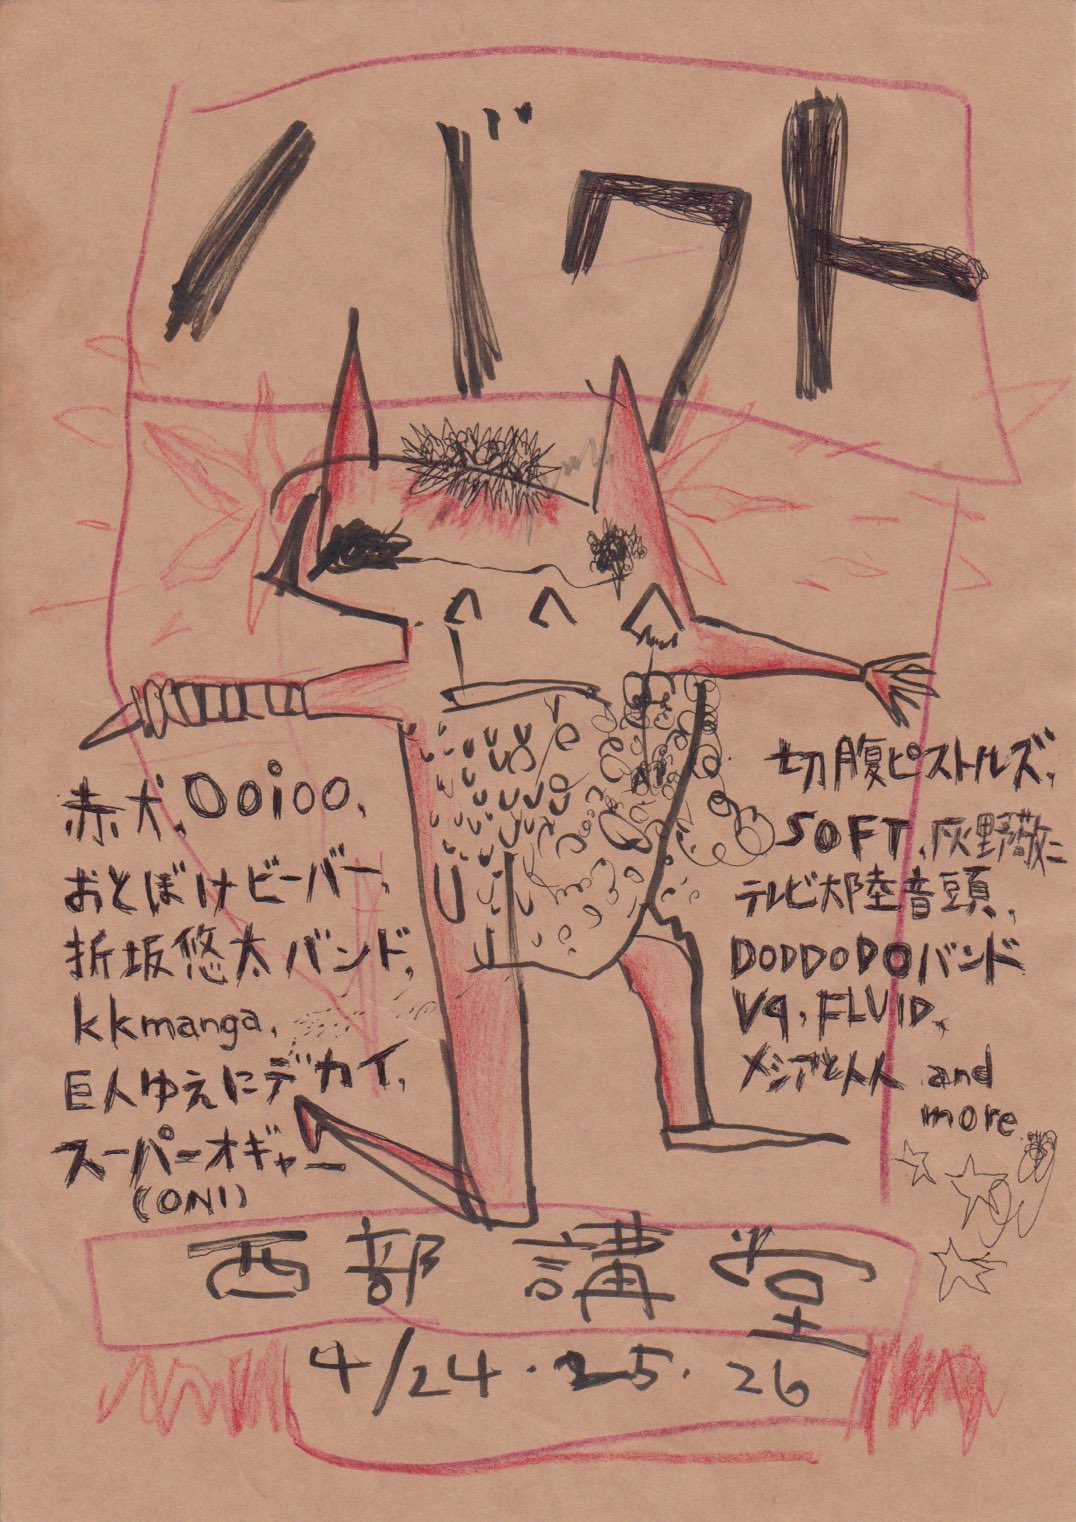 バクト
赤犬, OOiOO,
おとぼけビーバー,
折坂悠太バンド,
kkmanga,
巨人ゆえにデカイ,
スーパーオギャー
(ONI)
切腹ピストルズ,
SOFT, 灰野敬二
テレビ大陸音頭,
DODDODOバンド
V9, FLUID,
メシアと人人 and
more
西部講堂
4/24・25・26